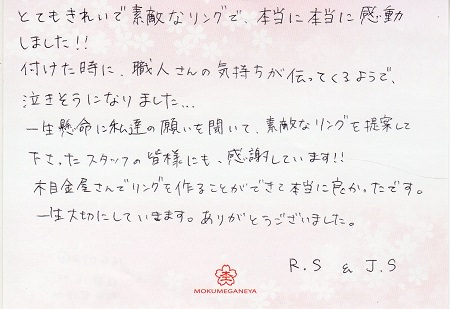 とてもきれいで素敵なリングで、本当に本当に感動
しました!!
付けた時に、職人さんの気持ちが伝ってくるようで、
泣きそうになりました...
一生懸命に私達の願いを聞いて、素敵なリングを提案して
下さったスタッフの皆様にも、感謝しています!!
木目金屋さんでリングを作ることができて本当に良かったです。
一生大切にしていきます。ありがとうございました。
R.S & J.S
MOKUMEGANEYA